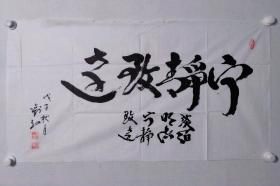 宁静致远
淡泊
明志
宁静
致远
戊子秋月